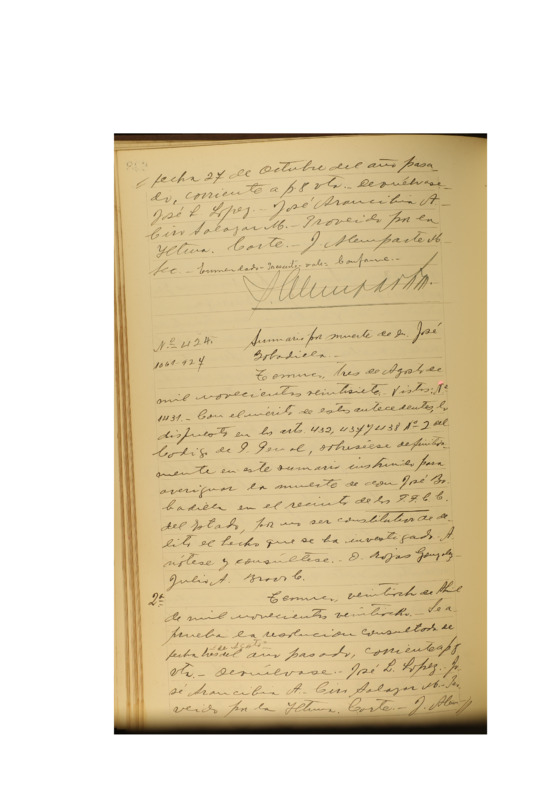 fecha 27 de Octubre del año pasa
do, corriente a f 8 vta.- Devuélvase.-
José L. Lopez.- José Arancibia A.-
Ciro Salazar M.- Proveido por la
Iltma. Corte.- J. Alemparte M.
Sec.- Enmendado- vale- Conforme.-
J. Alemparte M.
Nº 1124.
1061-927
Sumario por muerte de dn. José
Bobadilla.-
Temuco, tres de Agosto de
mil novecientos veintisiete.- Vistos: Nº
1431.- Con el mérito de estos antecedentes, lo
dispuesto en los arts. 432, 437 y 438 Nº 2 del
Codigo de P. Penal, sobreséese definitiva-
mente en este sumario instruido para
averiguar la muerte de don José Bo-
badilla en el recinto de los FF. C. C.
del Estado, por no ser constitutivo de de-
lito el hecho que se ha investigado. A
nótese y consúltese.- O. Rojas Gonzalez-
Julio A. C.
2ª
Temuco, veintiocho de Abril
de mil novecientos veintiocho.- Se a-
prueba la resolucion consultada de
fecha tres de Agosto del año pasado, corriente a f 8
vta.- Devuélvase.- José L. Lopez.- Jo
sé Arancibia A.- Ciro Salazar M.- Pro
veido por la Iltma. Corte.- J. Alemp